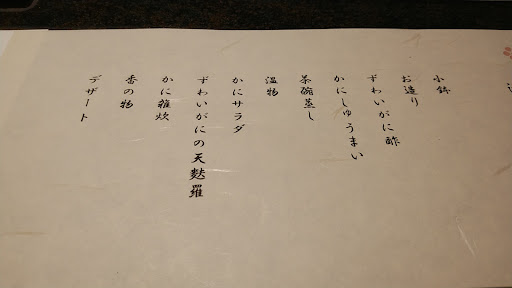 小鉢
お造り
ずわいがに酢
かにしゅうまい
茶碗蒸し
温物
かにサラダ
ずわいがにの天麩羅
かに雑炊
香の物
デザート